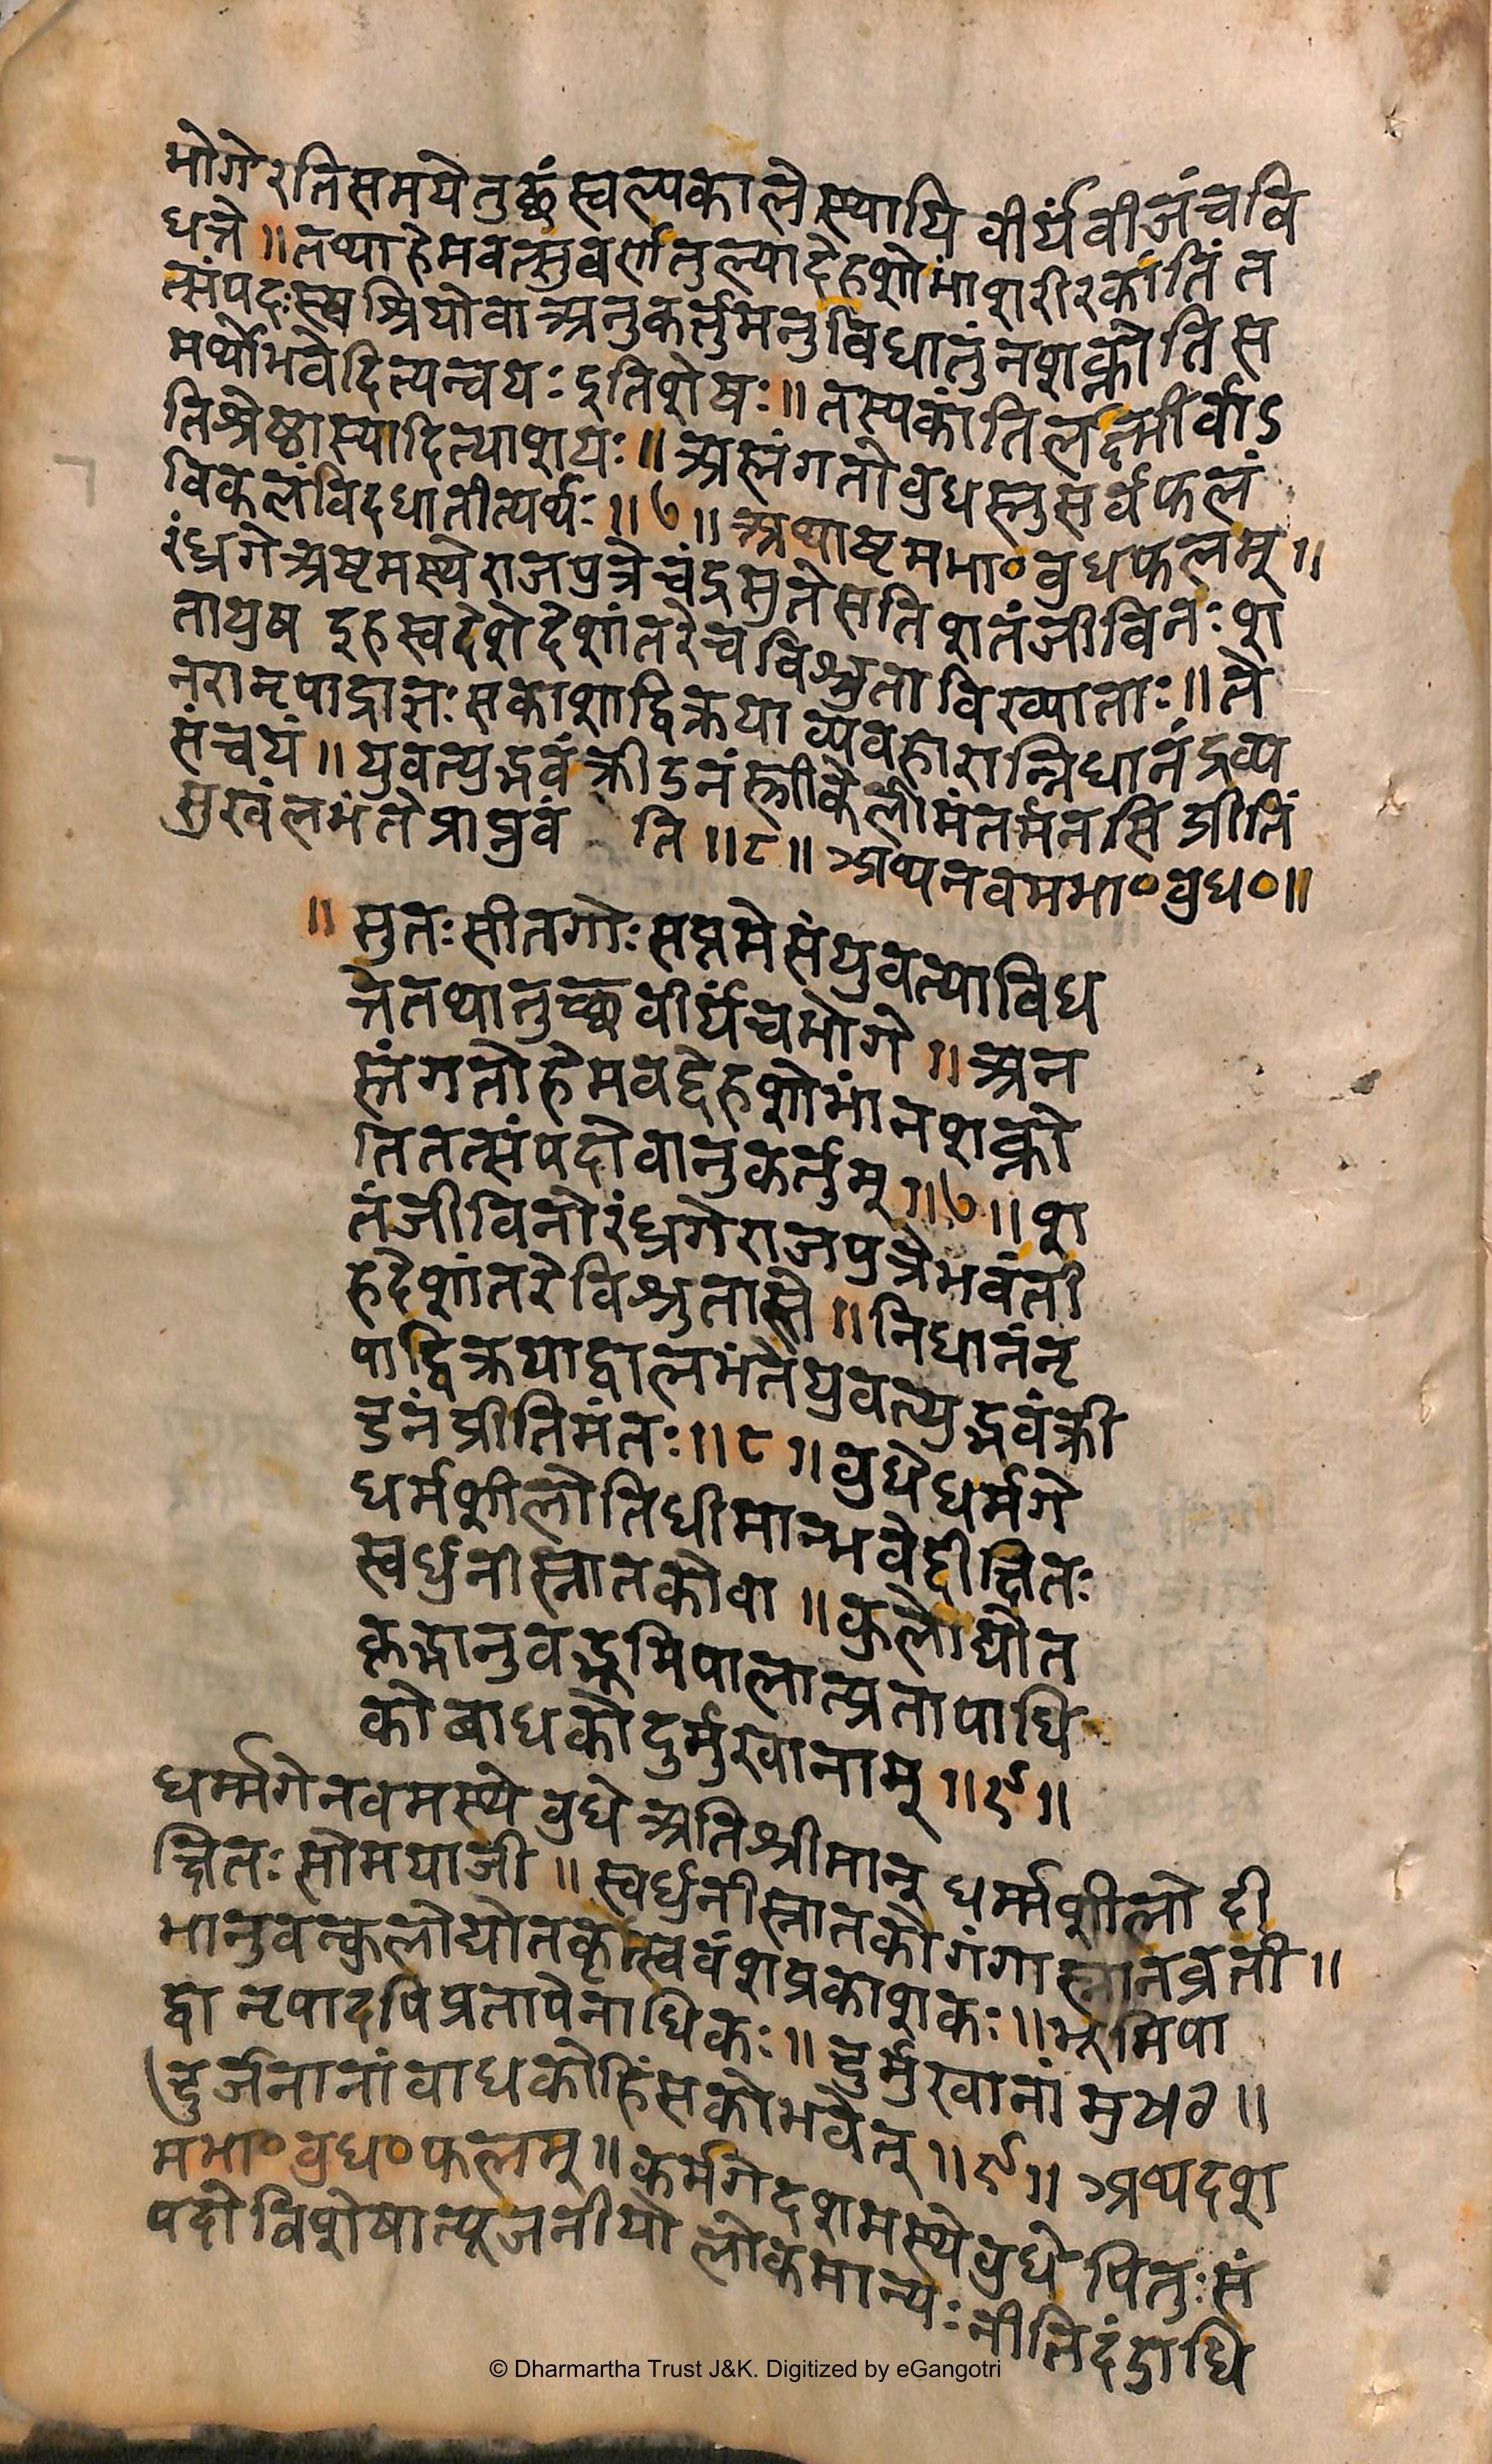 भोगेरतिसमयेतुछंस्वल्पकालेस्थायि वीर्यंवीजंचवि
धत्ते॥तथाहेमवत्सुवर्णतुल्यादेहशोभांशरीरकांतिंत
त्संपदःस्वश्रियोवाअनुकर्तुमनुविधातुंनशक्नोतिस
मर्थोभवेदित्यन्वयः इतिशेषः॥तस्यकांतिर्लक्ष्मीर्वाऽ
तिश्रेष्ठास्यादित्याशयः॥अस्तंगतोवुधस्तुसर्वफलं
विकलंविदधातीत्यर्थः॥७॥अथाष्टमभा०वुधफलम्॥
रंध्रगेअष्टमस्थेराजपुत्रेचंद्रसुतेसतिशतंजीविनःश
तायुष इहस्वदेशेदेशांतरेचविश्रुताविख्याताः॥ते
नरानृपाद्राज्ञःसकाशाद्विक्रयाव्यवहारान्निधानंद्रव्य
संचयं॥युवत्युद्भवंक्रीडनंस्त्रीकेलीमंतर्मनसिप्रीतिं
सुखंलभंतेप्राप्नुवं ति॥८॥अथनवमभा०वुध०॥
॥सुतःसीतगोःसप्तमेसंयुवत्याविध
त्तेतथातुच्छवीर्यंचभोगे॥अन
स्तंगतोहेमवद्देहशोभांनशक्नो
तितत्संपदोवानुकर्तुम्॥७॥श
तंजीविनोरंध्रगेराजपुत्रेभवंती
हदेशांतरेविश्रुतास्ते॥निधानंनृ
पाद्विक्रयाद्वालभंतेयुवत्युद्भवंक्री
डनंप्रीतिमंतः॥८॥वुधेधर्मगे
धर्मशीलोतिधीमान्भवेद्दीक्षितः
स्वर्धुनीस्नातकोवा॥कुलोद्योत
कृद्भानुवद्भूमिपालात्प्रतापाधि
कोबाधकोदुर्मुखानाम्॥९॥
धर्म्मगेनवमस्थेवुधेअतिश्रीमान् धर्म्मशीलो दी
क्षितःसोमयाजी॥स्वर्धुनीस्नातकोगंगास्नानव्रती॥
भानुवत्कुलोद्योतकृत्स्ववंशप्रकाशकः॥भूमिपा
द्वा नृपादपिप्रतापेनाधिकः॥दुर्मुखानां
दुर्जनानांवाधकोहिंसकोभवेत्॥९॥अथदश
मभा०वुध०फलम्॥कर्मगेदशमस्थेवुधेपितुःसं
पदोविशेषात्पूजनीयो लोकमान्यःनीतिदंडाधि
© Dharmartha Trust J&K. Digitized by eGangotri